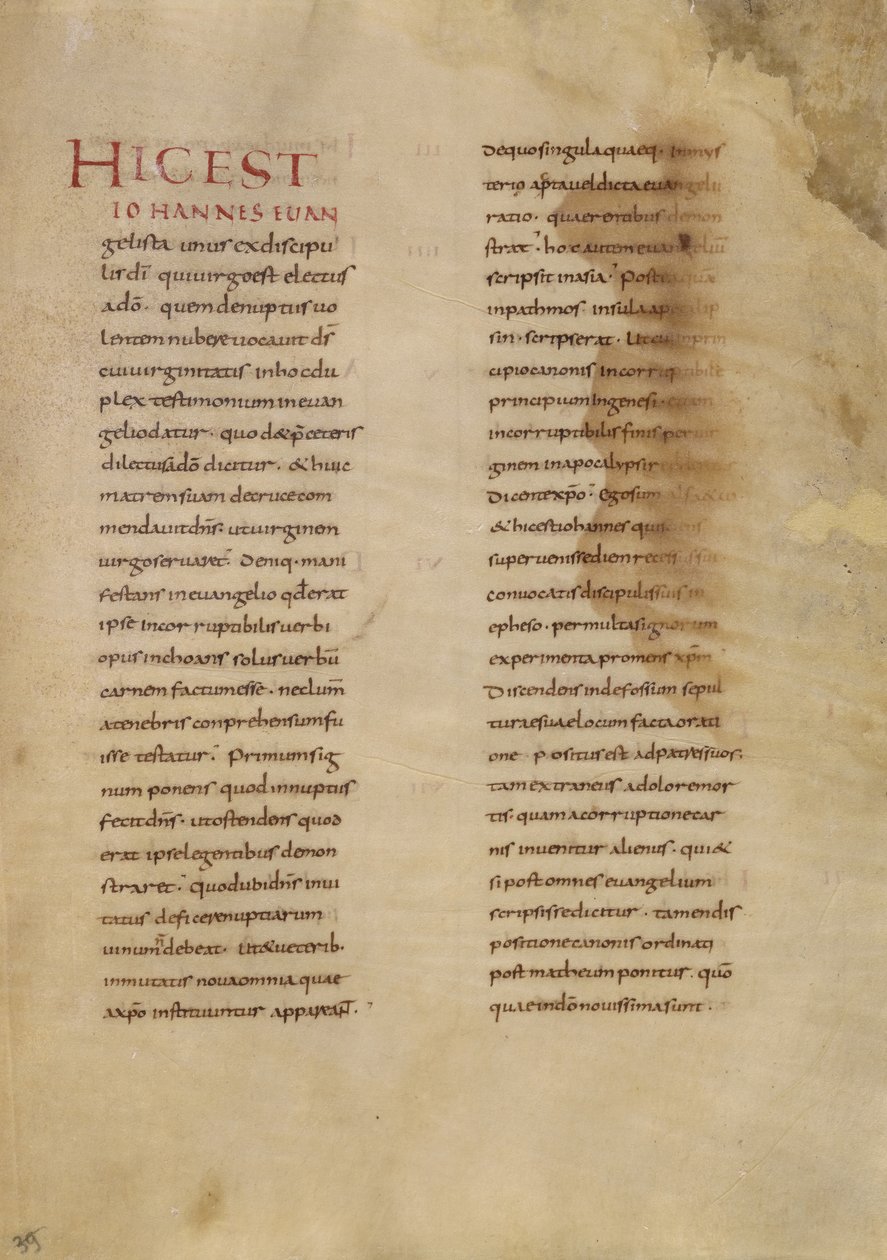 HIC EST
IOHANNES EUAN
gelista unus ex discipu
lis dī qui uirgo est electus
a dō. quem de nuptiis uo
lentem nubere uocauit ds̄
cui uirginitatis in hoc du
plex testimonium in euan
gelio datur. quod & p̄ ceteris
dilectus a dō dicitur. & huic
matrem suam de cruce com
mendauit dn̄s. ut uirginem
uirgo seruaret. Deniq. mani
festans in euangelio qd̄ erat
ipse incorruptibilis uerbi
opus inchoans solus uerbū
carnem factum esse. nec lum̄
a tenebris conprehensum fu
isse testatur. Primum sig
num ponens quod in nuptiis
fecit dn̄s. ut ostendens quod
erat ipse legentibus demon
straret. quod ubi dn̄s inui
tatus deficere nuptiarum
uinum debeat. Ut & ueterib.
inmutatis noua omnia quae
a xp̄o instituuntur appareaт̄.
De quo singula quaeq. in mys
terio apta uel dicta euangelii
ratio. quaerentibus demon
strat. hoc autem euangelium
scripsit in asia. Postea quā
in pathmos insula apocalip
sin. scripserat. Ut cui in prin
cipio canonis incorruptibile
principium In genesi. etiam
incorruptibilis finis per uir
ginem in apocalypsi
Dicente xp̄o. Ego sum alfa & ω
& hic est iohannes qui sciens
superuenisse diem recessus sui
conuocatis discipulis suis in
epheso. per multa signorum
experimenta promens xp̄m
Discendens in defossum sepul
turae suae locum facta orati
one positus est ad patres suos.
tam extraneus a dolore mor
tis. quam a corruptione car
nis inuenitur alienus. qui &
si post omnes euangelium
scripsisse dicitur. tamen dis
positione canonis ordinati
post matheum ponitur. quō
quae in dō nouissima sunt.
39